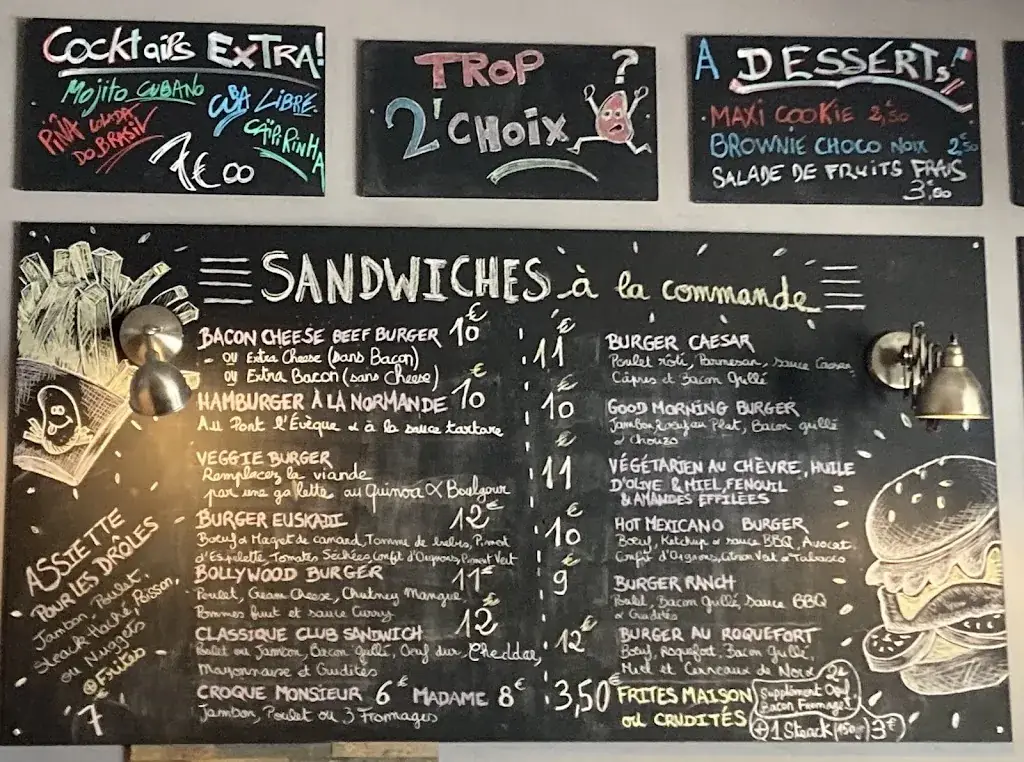 Cocktails EXTRA!
Mojito CUBANO
CUBA LIBRE
PIÑA COLADA
DO BRASIL
CAÏPIRINHA
7€00
TROP ?
2' CHOIX
A DESSERTS
MAXI COOKIE 2,50
BROWNIE CHOCO NOIX 2€50
SALADE DE FRUITS FRAIS
3€,00
SANDWICHES à la commande
BACON CHEESE BEEF BURGER 10€
- OU Extra Cheese (sans Bacon)
OU Extra Bacon (sans Cheese)
HAMBURGER À LA NORMANDE 10€
Au Pont l'Évèque & à la sauce tartare
VEGGIE BURGER
Remplacez la viande
par une galette au Quinoa & Boulgour
BURGER EUSKADI 12€
Bœuf & Magret de canard, Tomme de brebis, Piment
d'Espelette, Tomates Séchées, Confit d'Oignons, Piment Vert
BOLLYWOOD BURGER 11€
Poulet, Cream Cheese, Chutney Mangue,
Pommes fruit et sauce Curry
CLASSIQUE CLUB SANDWICH 12€
Poulet ou Jambon, Bacon Grillé, Oeuf dur, Cheddar,
Mayonnaise et Crudités
CROQUE MONSIEUR 6€ MADAME 8€
Jambon, Poulet ou 3 Fromages
11€ BURGER CAESAR
Poulet rôti, Parmesan, sauce Caesar,
Câpres et Bacon Grillé
10€ GOOD MORNING BURGER
Jambon, Bacon grillé
& Chorizo
11€ VÉGÉTARIEN AU CHÈVRE, HUILE
D'OLIVE & MIEL, FENOUIL
& AMANDES EFFILÉES
10€ HOT MEXICANO BURGER
Bœuf, Ketchup & sauce BBQ, Avocat,
Confit d'Oignons, Citron Vert & Tabasco
9€ BURGER RANCH
Poulet, Bacon Grillé, Sauce BBQ
& Crudités
12€ BURGER AU ROQUEFORT
Bœuf, Roquefort, Bacon Grillé,
Miel et Cerneaux de Noix
3,50€ FRITES MAISON
OU CRUDITÉS
2€
Supplément Oeuf
Bacon Fromage
+ 1 Steack (150gr) 3€
ASSIETTE
POUR LES DRÔLES
Jambon, Poulet,
Steack Haché, Poisson,
ou Nuggets
+ Frites
7€